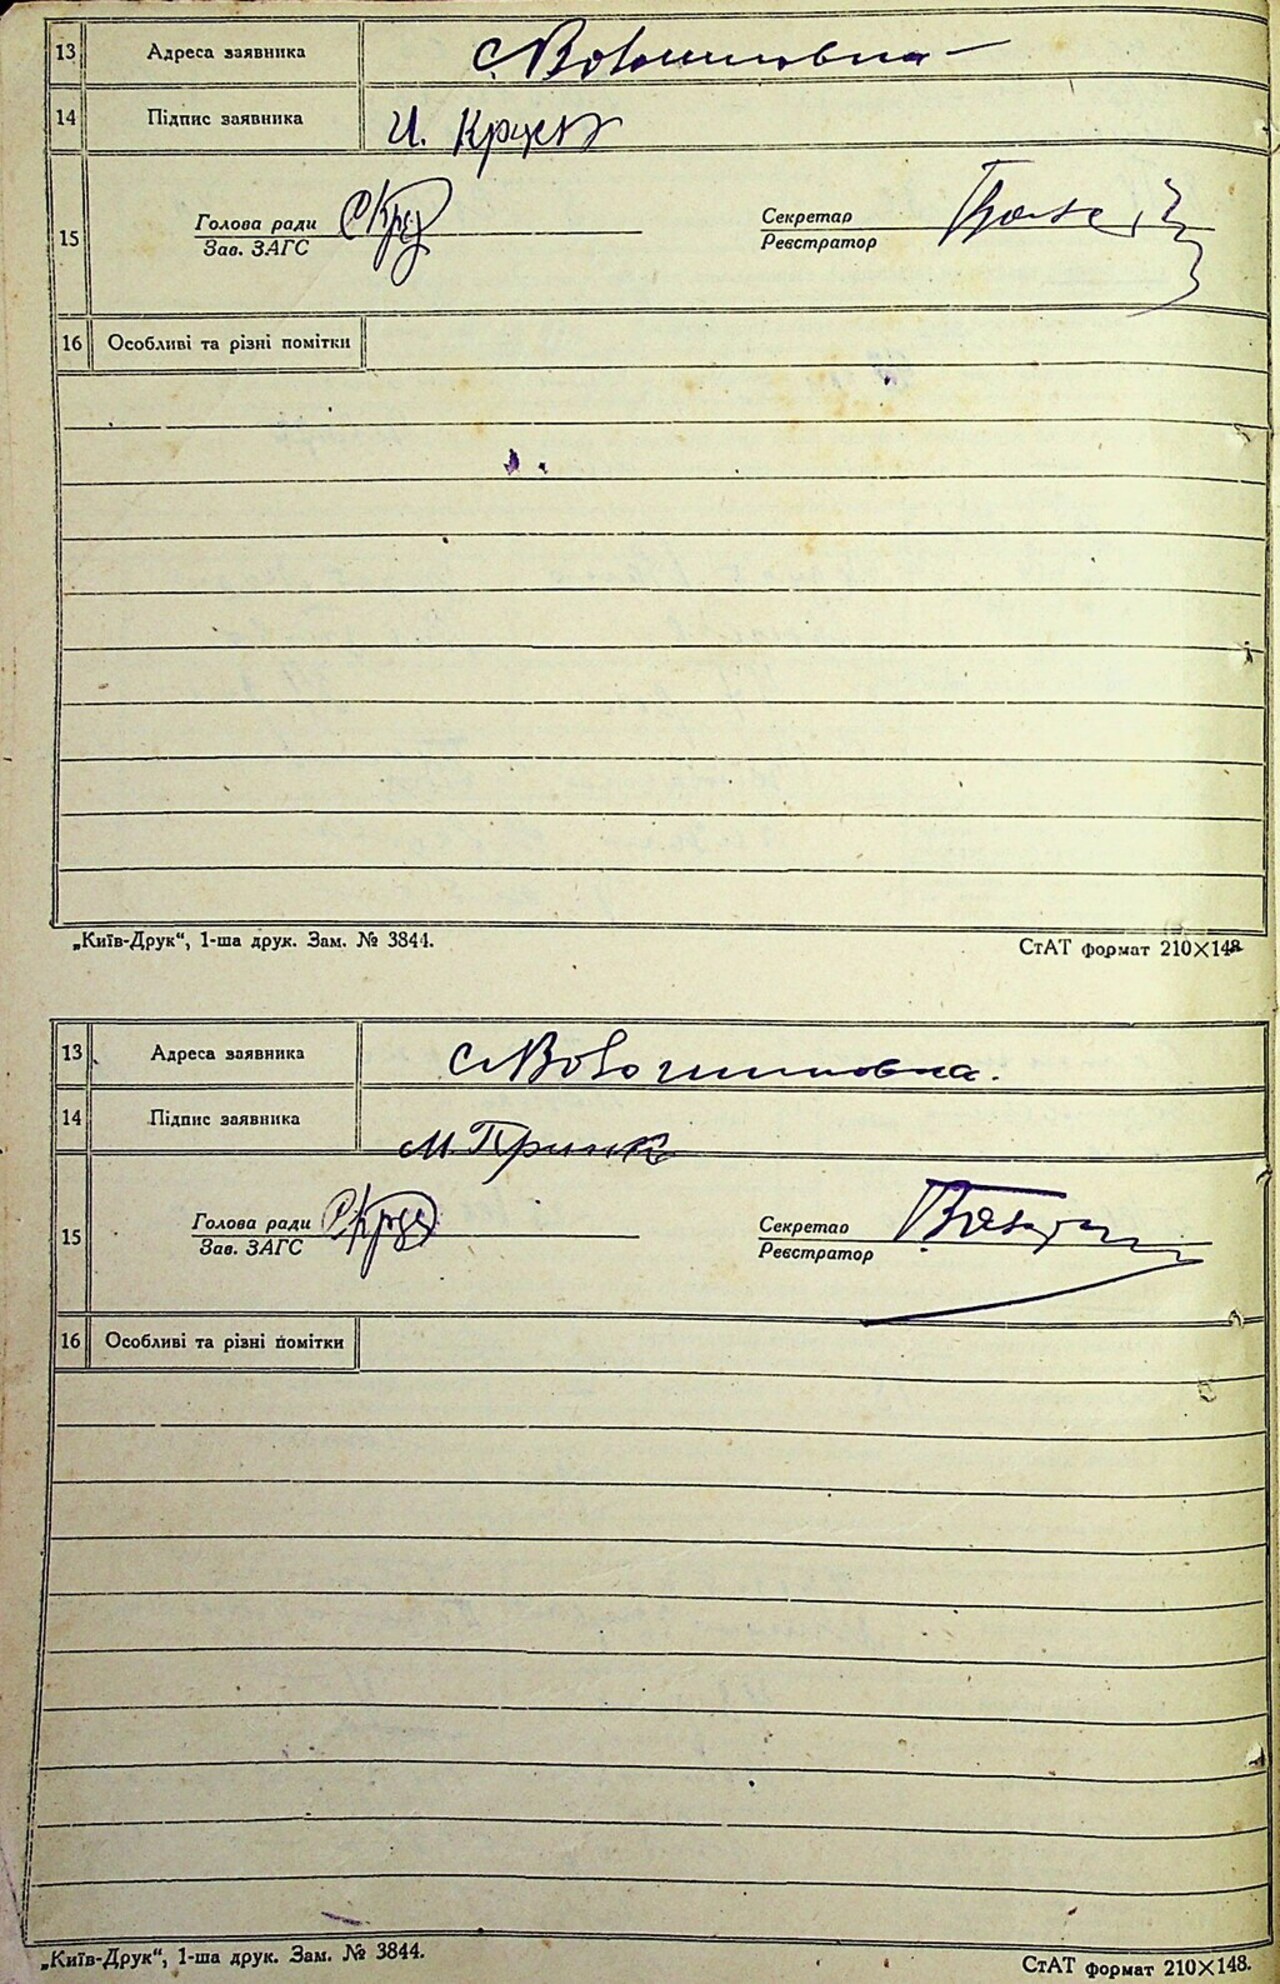 13 Адреса заявника с. Волошиновка
14 Підпис заявника И.
15 Голова ради Секретар
Зав. ЗАГС Реєстратор
16 Особливі та різні помітки
„Київ-Друк“, 1-ша друк. Зам. № 3844. СтАТ формат 210×148
13 Адреса заявника с. Волошиновка.
14 Підпис заявника М.
15 Голова ради Секретар
Зав. ЗАГС Реєстратор
16 Особливі та різні помітки
„Київ-Друк“, 1-ша друк. Зам. № 3844. СтАТ формат 210×148.